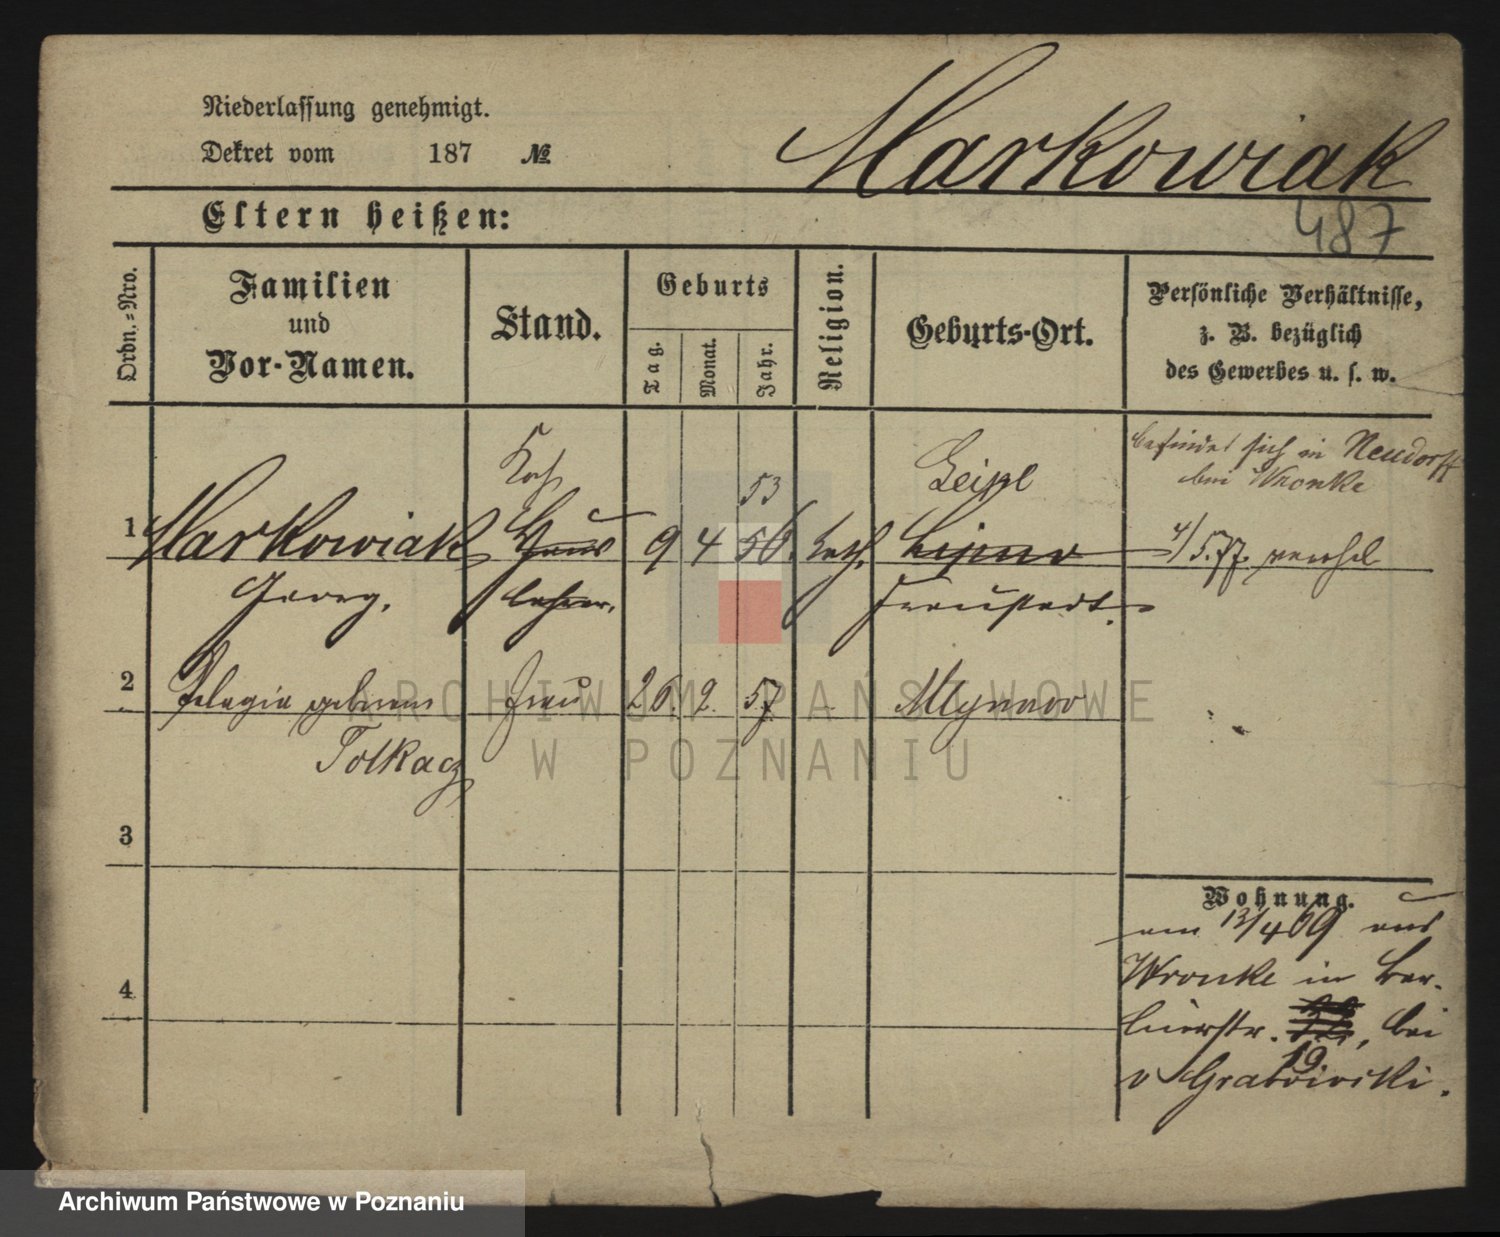 Niederlassung genehmigt.
Dekret vom 187 №
Markowiak
487
Eltern heißen:
Ordn.=Nro.
Familien
und
Vor-Namen.
Stand.
Geburts
Tag.
Monat.
Jahr.
Religion.
Geburts-Ort.
Persönliche Verhältnisse,
z. B. bezüglich
des Gewerbes u. s. w.
Koch
53
befindet sich in Neudorff
bei Wronke
1 Markowiak Haus 9 4 56. kath.
4/5.77.
Georg. lehrer. Fraustadt.
2 Pelagia geborene Frau 26. 2. 57.
Tolkacz
3
4
Wohnung.
am 13/4 69 aus
Wronke in Ber-
linerstr. , bei
19.
v
ARCHIWUM PAŃSTWOWE
W POZNANIU
Archiwum Państwowe w Poznaniu